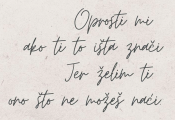 Oprosti mi
ako ti to išta znači
Jer želim ti
ono što ne možeš naći